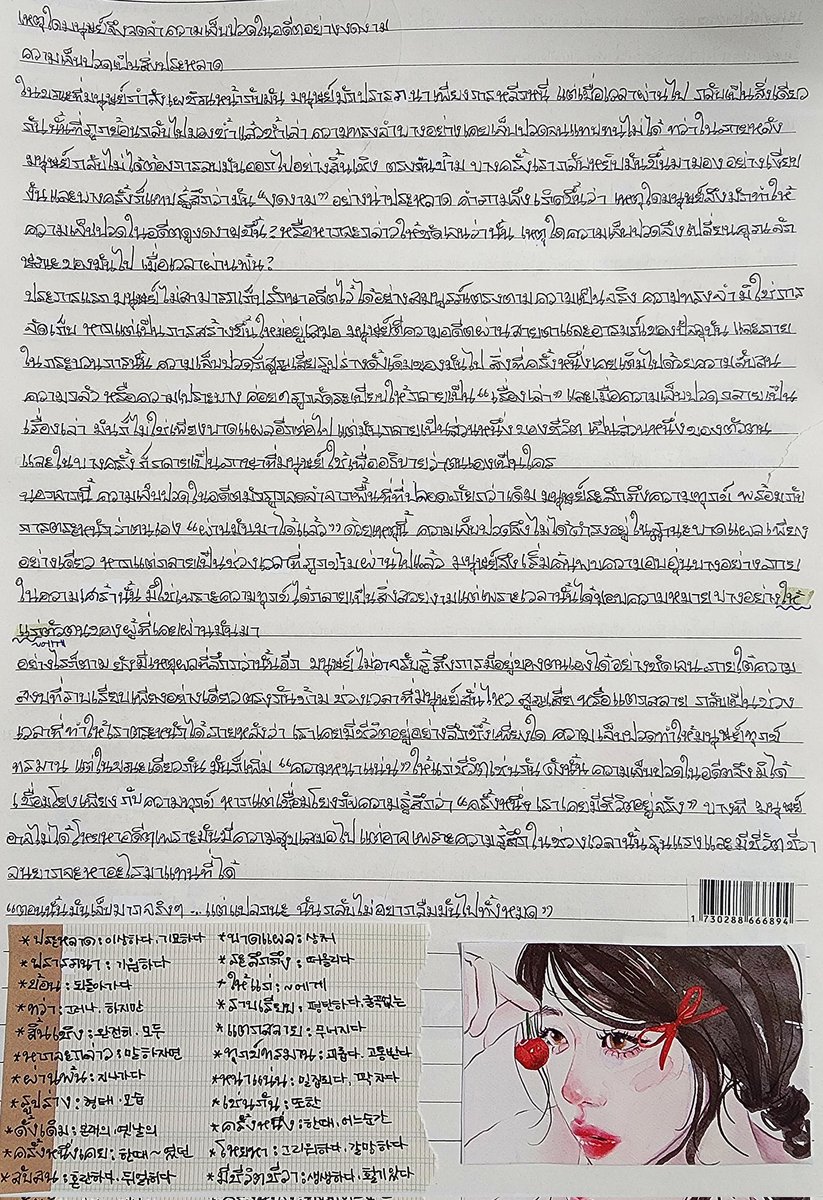 เหตุใดมนุษย์จึงจดจำความเจ็บปวดในอดีตอย่างงดงาม
ความเจ็บปวดเป็นสิ่งประหลาด
ในขณะที่มนุษย์กำลังเผชิญหน้ากับมัน มนุษย์มักปรารถนาเพียงการหลีกหนี แต่เมื่อเวลาผ่านไป กลับเป็นสิ่งเดียว
กันนั้นที่ถูกย้อนกลับไปมองซ้ำแล้วซ้ำเล่า ความทรงจำบางอย่างเคยเจ็บปวดจนแทบทนไม่ได้ ทว่าในภายหลัง
มนุษย์กลับไม่ได้ต้องการลบมันออกไปอย่างสิ้นเชิง ตรงกันข้าม บางครั้งเรากลับหยิบมันขึ้นมามอง อย่างเงียบ
งัน และบางครั้งก็แทบรู้สึกว่ามัน “งดงาม” อย่างน่าประหลาด คำถามจึงเกิดขึ้นว่า เหตุใดมนุษย์จึงมักทำให้
ความเจ็บปวดในอดีตดูงดงามขึ้น? หรือหากจะกล่าวให้ชัดเจนกว่านั้น เหตุใดความเจ็บปวดจึงเปลี่ยนคุณลัก
ษณะของมันไป เมื่อเวลาผ่านพ้น?
ประการแรก มนุษย์ไม่สามารถเก็บรักษาอดีตไว้ได้อย่างสมบูรณ์ตรงตามความเป็นจริง ความทรงจำมิใช่การ
จัดเก็บ หากแต่เป็นการสร้างขึ้นใหม่อยู่เสมอ มนุษย์ตีความอดีตผ่านสายตาและอารมณ์ของปัจจุบัน และภาย
ในกระบวนการนั้น ความเจ็บปวดก็สูญเสียรูปร่างดั้งเดิมของมันไป สิ่งที่ครั้งหนึ่งเคยเต็มไปด้วยความสับสน
ความกลัว หรือความเปราะบาง ค่อยๆถูกจัดระเบียบให้กลายเป็น “เรื่องเล่า” และเมื่อความเจ็บปวดกลายเป็น
เรื่องเล่า มันก็ไม่ใช่เพียงบาดแผลอีกต่อไป แต่มันกลายเป็นส่วนหนึ่งของชีวิต เป็นส่วนหนึ่งของตัวตน
และในบางครั้ง ก็กลายเป็นภาษาที่มนุษย์ใช้เพื่ออธิบายว่าตนเองเป็นใคร
นอกจากนี้ ความเจ็บปวดในอดีตมักถูกจดจำจากพื้นที่ที่ปลอดภัยกว่าเดิม มนุษย์ระลึกถึงความทุกข์ พร้อมกับ
การตระหนักว่าตนเอง “ผ่านมันมาได้แล้ว” ด้วยเหตุนี้ ความเจ็บปวดจึงไม่ได้ดำรงอยู่ในฐานะบาดแผลเพียง
อย่างเดียว หากแต่กลายเป็นช่วงเวลาที่ถูกข้ามผ่านไปแล้ว มนุษย์จึงเริ่มค้นพบความอบอุ่นบางอย่างภาย
ในความเศร้านั้น มิใช่เพราะความทุกข์ได้กลายเป็นสิ่งสวยงามแต่เพราะเวลานั้นได้มอบความหมายบางอย่างให้
แก่ตัวตนของผู้ที่เคยผ่านมันมา
~에게
อย่างไรก็ตาม ยังมีเหตุผลที่ลึกกว่านั้นอีก มนุษย์ไม่อาจรับรู้ถึงการมีอยู่ของตนเองได้อย่างชัดเจน ภายใต้ความ
สงบที่ราบเรียบเพียงอย่างเดียวตรงกันข้าม ช่วงเวลาที่มนุษย์สั่นไหว สูญเสีย หรือแตกสลาย กลับเป็นช่วง
เวลาที่ทำให้เราตระหนักได้ภายหลังว่า เราเคยมีชีวิตอยู่อย่างลึกซึ้งเพียงใด ความเจ็บปวดทำให้มนุษย์ทุกข์
ทรมาน แต่ในขณะเดียวกัน มันก็เพิ่ม “ความหนาแน่น” ให้แก่ชีวิตเช่นกัน ดังนั้น ความเจ็บปวดในอดีตจึงมิได้
เชื่อมโยงเพียงกับความทุกข์ หากแต่เชื่อมโยงกับความรู้สึกว่า “ครั้งหนึ่ง เราเคยมีชีวิตอยู่จริง” บางที มนุษย์
อาจไม่ได้โหยหาอดีตเพราะมันมีความสุขเสมอไป แต่อาจเพราะความรู้สึกในช่วงเวลานั้นรุนแรงและมีชีวิตชีวา
จนยากจะหาอะไรมาแทนที่ได้
“ตอนนั้นมันเจ็บมากจริงๆ ... แต่แปลกนะ ฉันกลับไม่อยากลืมมันไปทั้งหมด”
1 730288 666894
*ประหลาด : 이상하다, 기묘하다
*ปรารถนา : 기원하다
*ย้อน : 되돌아가다
*ทว่า : 그러나, 하지만
*สิ้นเชิง : 완전히, 모두
*หากจะกล่าว : 말하자면
*ผ่านพ้น : 지나가다
*รูปร่าง : 형태, 모습
*ดั้งเดิม : 본래의, 옛날의
*ครั้งหนึ่งเคย : 한때~했던
*สับสน : 혼란하다, 뒤얽히다
*บาดแผล : 상처
*ระลึกถึง : 떠올리다
*ให้แก่ : ~에게
*ราบเรียบ : 평탄하다, 굴곡없는
*แตกสลาย : 무너지다
*ทุกข์ทรมาน : 괴롭다, 고통받다
*หนาแน่น : 밀집되다, 꽉차다
*เช่นกัน : 또한
*ครั้งหนึ่ง : 한때, 어느순간
*โหยหา : 그리워하다, 갈망하다
*มีชีวิตชีวา : 생생하다, 활기있다